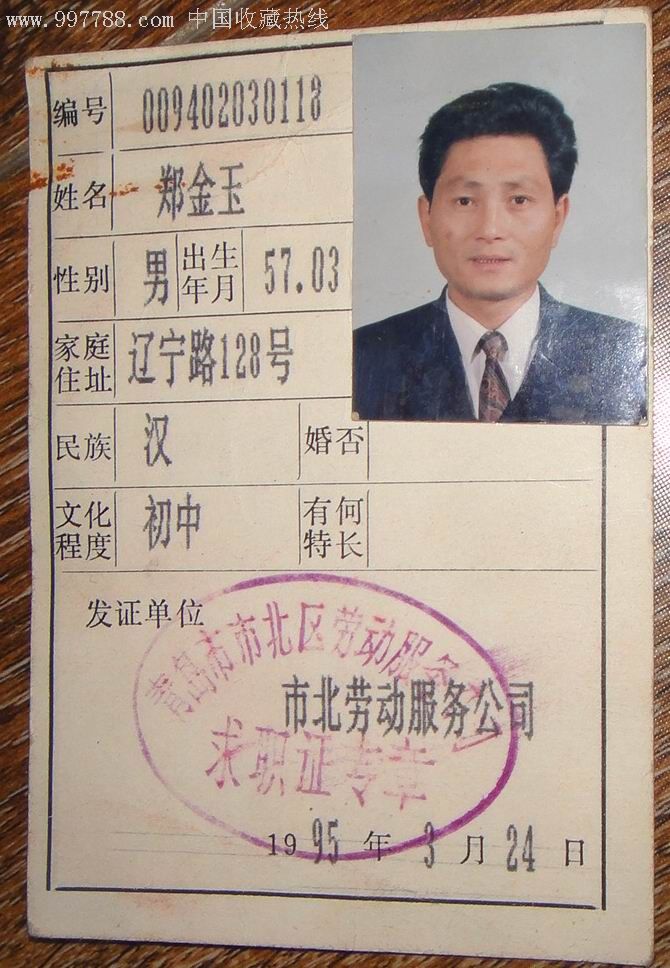 www.997788.com 中国收藏热线
编号 009402030118
姓名 郑金玉
性别 男 出生年月 57.03
家庭住址 辽宁路128号
民族 汉 婚否
文化程度 初中 有何特长
发证单位
青岛市市北区劳动服务公司
市北劳动服务公司
求职证专章
1995年3月24日